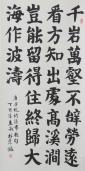 千岩萬壑不辭勞遠
看方知出處高溪澗
豈能留得住終歸大
海作波濤